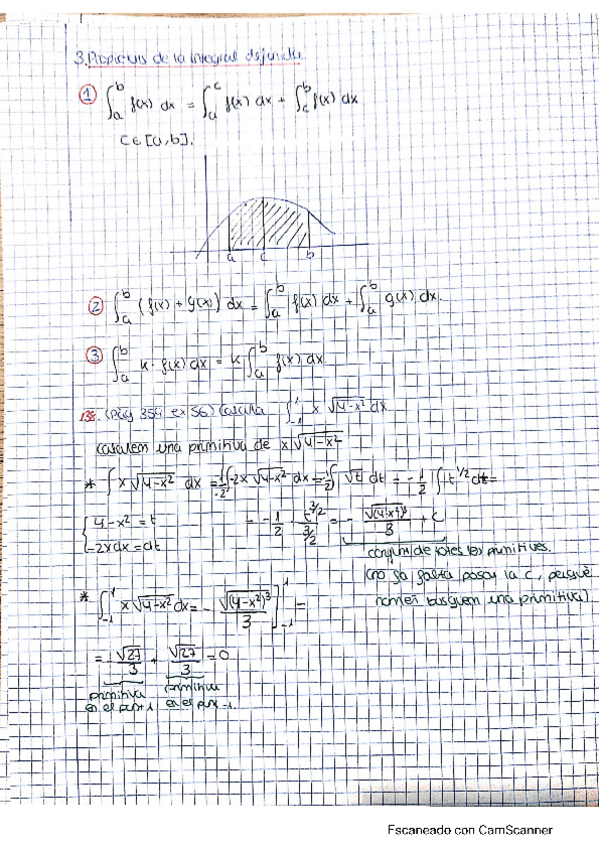 3. Propietats de la integral definida.
① ∫_a^b f(x) dx = ∫_a^c f(x) dx + ∫_c^b f(x) dx
c ∈ [a,b].
a c b
② ∫_a^b (f(x) + g(x)) dx = ∫_a^b f(x) dx + ∫_a^b g(x) dx.
③ ∫_a^b k · f(x) dx = k ∫_a^b f(x) dx
138. (Pàg 354 ex 56) Calcula ∫_{-1}^1 x √(4-x²) dx
Calculem una primitiva de x√(4-x²)
* ∫ x √(4-x²) dx = 1/-2 ∫ -2x √(4-x²) dx = -1/2 ∫ √t dt = -1/2 ∫ t^{1/2} dt =
{ 4-x² = t
-2xdx = dt
= -1/2 t^{3/2}/(3/2) = - √((4-x²)³)/3 + C
conjunt de totes les primitives.
(no fa falta posar la C, perquè
només busquem una primitiva)
* ∫_{-1}^1 x √(4-x²) dx = - √((4-x²)³)/3 ]_{-1}^1 =
= - √27/3 + √27/3 = 0
primitiva primitiva
en el punt 1 en el punt -1.
Escaneado con CamScanner